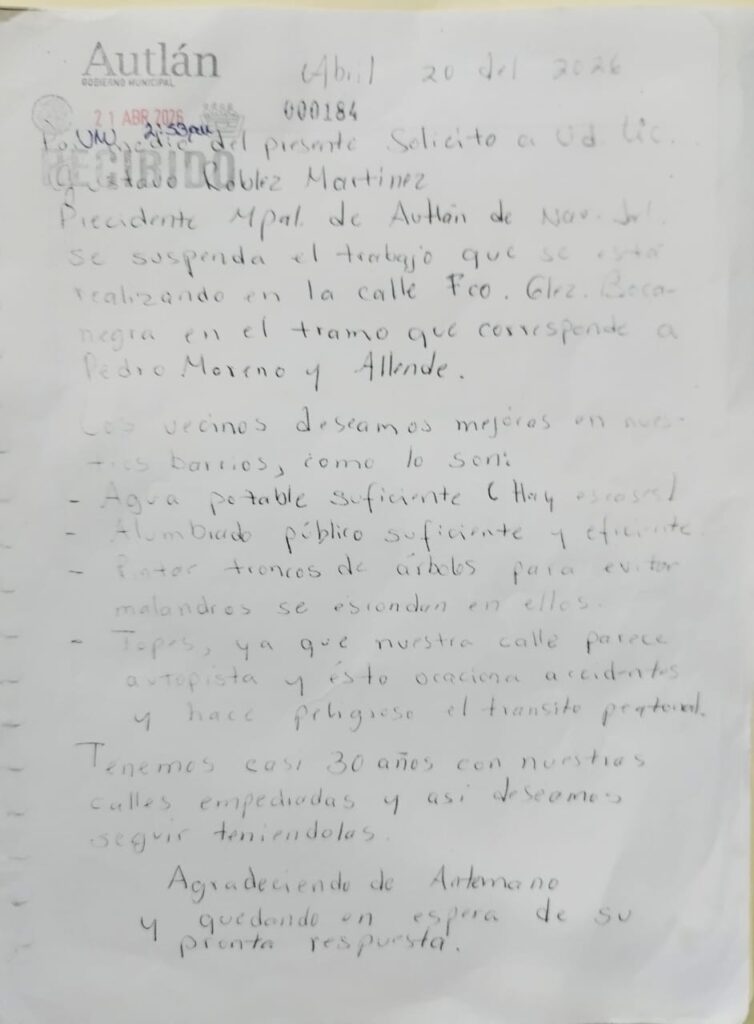 Autlán
GOBIERNO MUNICIPAL
Abril 20 del 2026
21 ABR 2026
000184
2:53pm
RECIBIDO
del presente Solicito a Ud. Lic.
Gustavo Roblez Martinez
Precidente Mpal. de Autlán de Nav. Jal.
se suspenda el trabajo que se está
realizando en la calle Fco. Glez. Boca-
negra en el tramo que corresponde a
Pedro Moreno y Allende.
Los vecinos deseamos mejoras en nues-
tros barrios, como lo son:
- Agua potable suficiente (Hay escases)
- Alumbrado público suficiente y eficiente.
- Pintar troncos de árboles para evitar
malandros se escondan en ellos.
- Topes, ya que nuestra calle parece
autopista y ésto ocaciona accidentes
y hace peligroso el transito peatonal.
Tenemos casi 30 años con nuestras
calles empedradas y asi deseamos
seguir teniendolas.
Agradeciendo de Antemano
y quedando en espera de su
pronta respuesta.